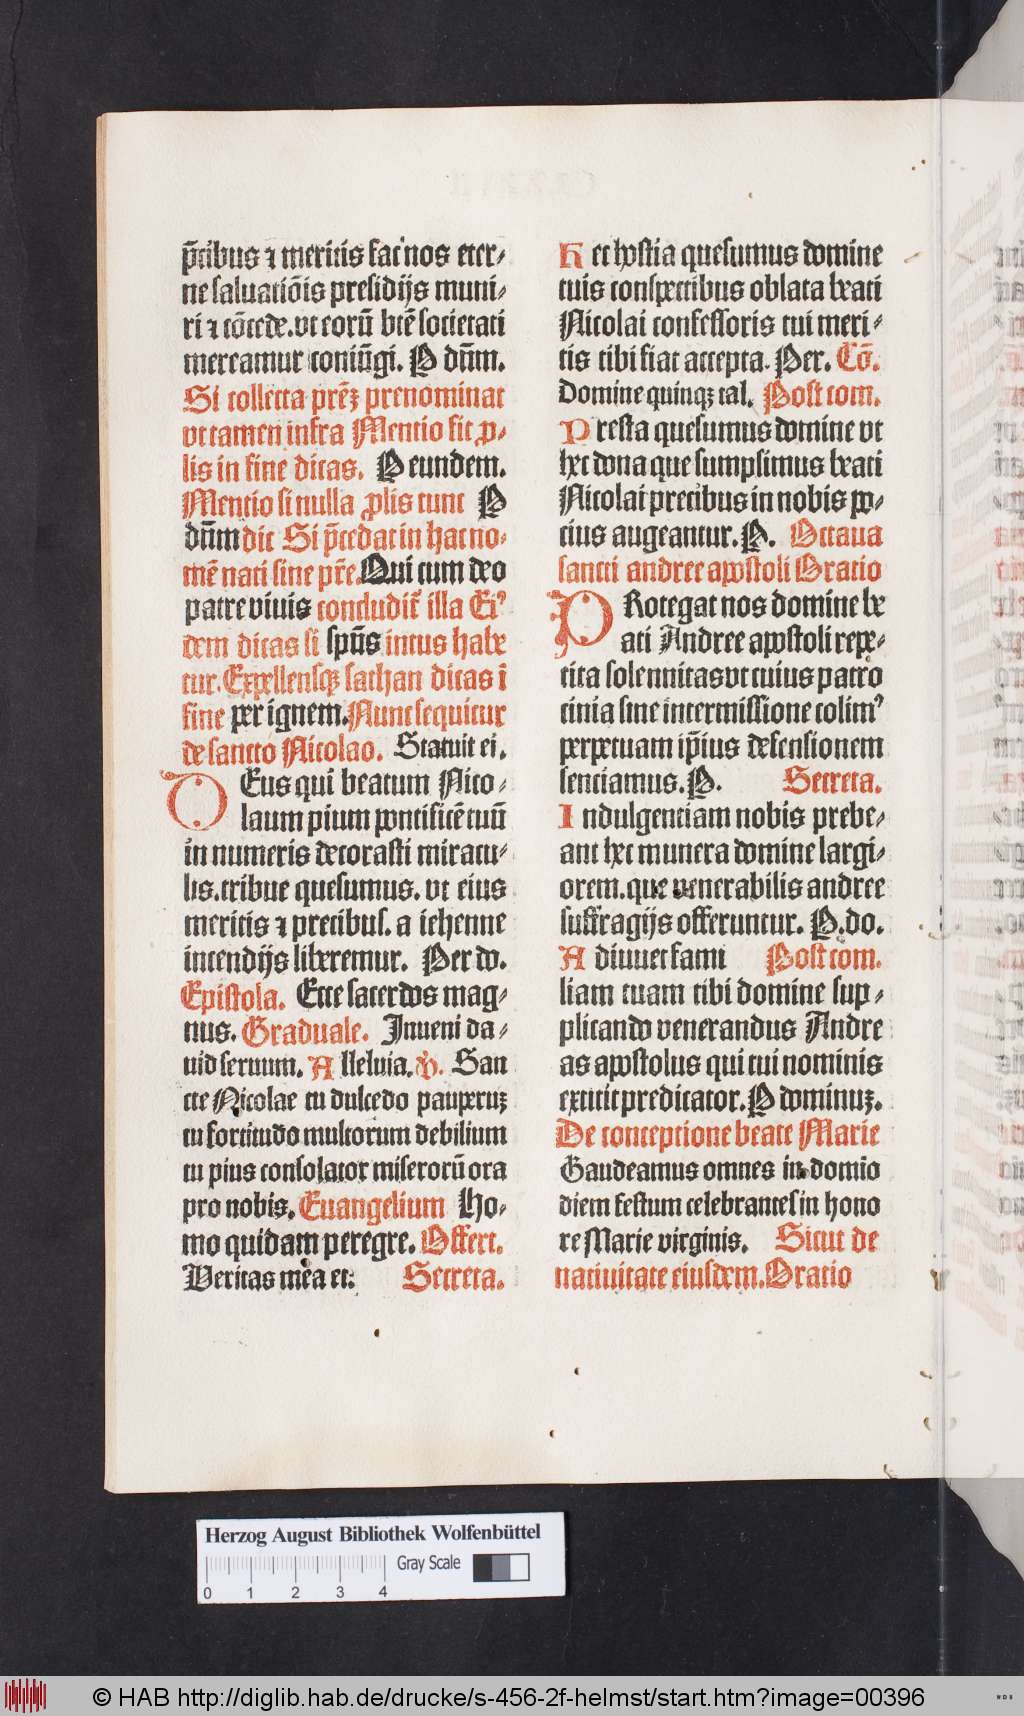 p̄cibus ⁊ meritis fac nos eter-
ne saluatiōis presidijs muni-
ri ⁊ cōcede. vt eorū btē societati
mereamur coniūgi. P dn̄m.
Si collecta prēꝫ prenominat
vt tamen infra Mentio fit ꝓ-
lis in fine dicas. P eundem.
Mentio si nulla ꝓlis tunc P
dn̄m dic Si p̄cedat in hac no-
mē nati sine pr̄e. Qui cum deo
patre viuis concludit̄ illa Eiꝰ
dem dicas si spūs intus habe
tur. Expellensqꝫ sathan dicas ī
fine per ignem. Nunc sequitur
de sancto Nicolao. Statuit ei.
DEus qui beatum Nico-
laum pium pontificē tuū
in numeris decorasti miracu-
lis. tribue quesumus. vt eius
meritis ⁊ precibus. a iehenne
incendijs liberemur. Per do.
Epistola. Ecce sacerdos mag-
nus. Graduale. Inueni da-
uid seruum. Alleluia. ℣. San
cte Nicolae tu dulcedo pauperuꝫ
tu fortitudo multorum debilium
tu pius consolator miserorū ora
pro nobis. Euangelium Ho-
mo quidam peregre. Offert.
Veritas mea et: Secreta.
Hec hostia quesumus domine
tuis conspectibus oblata beati
Nicolai confessoris tui meri-
tis tibi fiat accepta. Per. Cō.
Domine quinqꝫ tal. Post com.
Presta quesumus domine vt
hec dona que sumpsimus beati
Nicolai precibus in nobis po-
tius augeantur. P. Octaua
sancti andree apostoli Oratio
PRotegat nos domine be
ati Andree apostoli repe-
tita solennitas vt cuius patro
cinia sine intermissione colimꝰ
perpetuam ip̄ius defensionem
sentiamus. P. Secreta.
Indulgentiam nobis prebe-
ant hec munera domine largi-
orem. que venerabilis andree
suffragijs offeruntur. P. do.
Adiuuet fami Post com.
liam tuam tibi domine sup-
plicando venerandus Andre
as apostolus qui tui nominis
extitit predicator. P dominuꝫ.
De conceptione beate Marie
Gaudeamus omnes in domio
diem festum celebrantes in hono
re Marie virginis. Sicut de
natiuitate eiusdem. Oratio
Herzog August Bibliothek Wolfenbüttel
Gray Scale
0 1 2 3 4
© HAB http://diglib.hab.de/drucke/s-456-2f-helmst/start.htm?image=00396